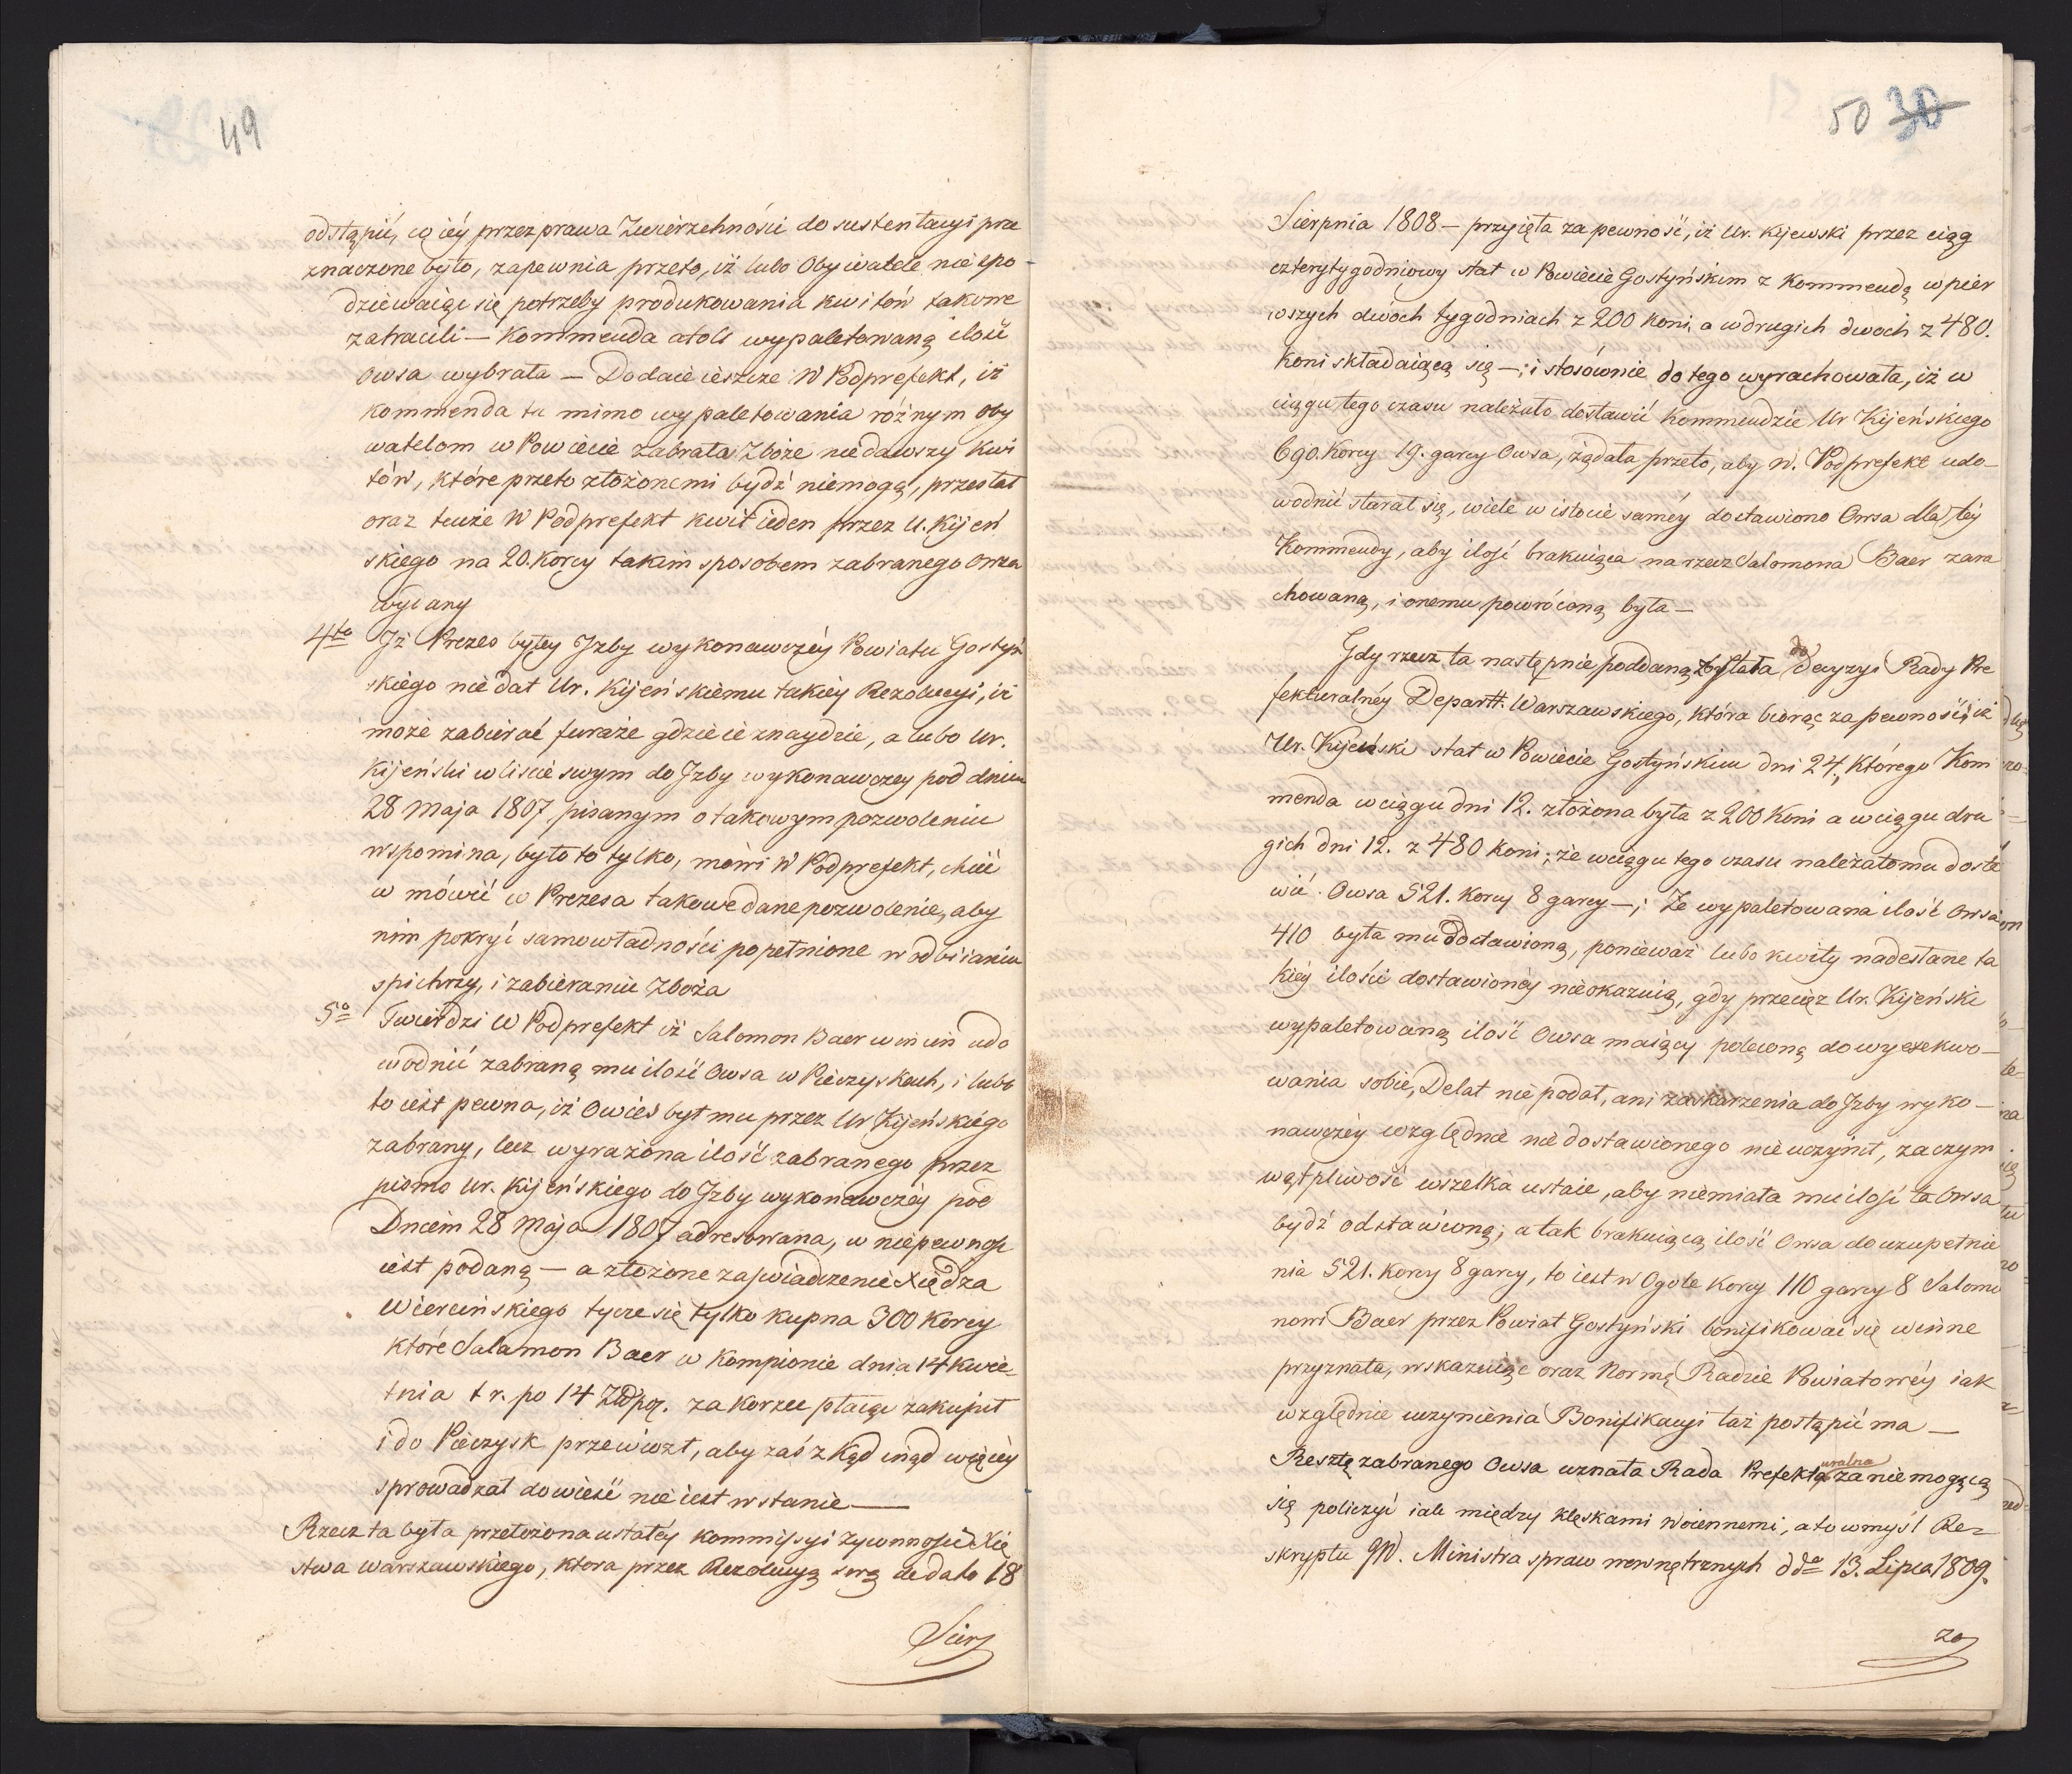 49
odstąpić, co iéy przez prawa Zwierzchności do sustentacyi prze
znaczone było, zapewnia przeto, iż lubo Obywatele nie spo
dziewaiąc się potrzeby produkowania kwitów takowe
zatracili — Kommenda atoli wypaletowaną ilość
Owsa wybrała — Dodaie ieszcze W Podprefekt, iż
Kommenda ta mimo wypaletowania różnym oby
watelom w Powiecie zabrała Zboże niedawszy Kwi
tów, które przeto złożonemi bydź niemogą, przesłał
oraz tenże W Podprefekt kwit ieden przez U. Kijeń
skiego na 20. Korcy takim sposobem zabranego Owsa
wydany
4to Iż Prezes byłey Izby wykonawczéy Powiatu Gostyń
skiego nie dał Ur. Kijeńskiemu takiéy Rezolucyi, iż
może zabierać furaże gdzie ie znaydzie, a lubo Ur.
Kijeński w liście swym do Izby wykonawczey pod dniem
28 Maja 1807 pisanym o takowym pozwoleniu
wspomina, było to tylko, mówi W Podprefekt, chęć
w mówić w Prezesa takowe dane pozwolenie, aby
nim pokryć samowładności popełnione w odbiianiu
spichrzy, i zabieraniu Zboża
5o Twierdzi W Podprefekt iż Salomon Baer winien udo
wodnić zabraną mu ilość Owsa w Pieczyskach, i lubo
to iest pewna, iż Owies był mu przez Ur Kijeńskiégo
zabrany, lecz wyrażona ilość zabranego przez
pismo Ur. Kijeńskiego do Izby wykonawczéy pod
Dniem 28 Maja 1807 adresowana, w niepewnośc
iest podaną — a złożone zaświadczenie Xiędza
Wiercińskiego tycze się tylko kupna 300 Korcy
któré Salamon Baer w Kompionie dnia 14 Kwie-
tnia t r. po 14 Złłpoz. za Korzec płacąc zakupił
i do Pieczysk przewiozł, aby zaś z kąd inąd więcéy
sprowadzał dowieść nie iest w stanie —
Rzecz ta była przełożona ustałéy Kommissyi żywności Xię
stwa warszawskiego, ktora przez Rezolucyą swą de dato 18
Sierp
50 30
Sierpnia 1808 — przyięła za pewność, iż Ur. Kijewski przez ciąg
czterytygodniowy stał w Powiecie Gostyńskim z Kommendą w pier
wszych dwóch tygodniach z 200 Koni, a w drugich dwóch z 480.
Koni składaiącą się —; i stosównie do tego wyrachowała, iż w
ciągu tego czasu należało dostawić Kommendzie Ur Kijeńskiego
690. Korcy 19. garcy Owsa, żądała przeto, aby W. Podprefekt udo-
wodnić starał się, wiele w istocie saméy dostawiono Owsa dla téy
Kommendy, aby ilość brakuiąca na rzecz Salomona Baer zara
chowaną, i onemu powróconą była —
Gdy rzecz ta następnie poddaną została do decyzyi Rady Pre
fekturalnéy Departt. Warszawskiego, która biorąc za pewność, iż
Ur. Kijeński stał w Powiecie Gostyńskim dni 24, którego Kom
menda w ciągu dni 12. złożona była z 200 Koni a w ciągu dru
gich dni 12. z 480 Koni; że w ciągu tego czasu należało mu dosta
wić. Owsa 521. Korcy 8 garcy —; Że wypaletowana ilość Owsa
410 była mu dostawioną, ponieważ lubo kwity nadesłane ta
kiéy ilości dostawionéy nieokazuią, gdy przecięż Ur. Kijeński
wypaletowaną ilość Owsa maiący poleconą do wyexekwo-
wania sobie, Delat nie podał, ani zaskarzenia do Izby wyko-
nawczéy względnie nie dostawionego nie uczynił, zaczym
wątpliwość wszelka ustaie, aby niemiała mu ilość ta Owsa
bydź odstawioną; a tak brakuiącą ilość Owsa do uzupełnie
nia 521. Korcy 8 garcy, to iest w Ogole Korcy 110 garcy 8 Salomo
nowi Baer przez Powiat Gostyński bonifikować się winne
przyznała, wskazuiąc oraz Normę Radzie Powiatowéy iak
względnie uczynienia Bonifikacyi taż postąpić ma —
Resztę zabranego Owsa uznała Rada Prefekturalna za nie mogącą
się policzyć iak między klęskami Woiennemi, a to w myśl Re-
skryptu JW. Ministra spraw wewnętrznych ddo 13. Lipca 1809.
za